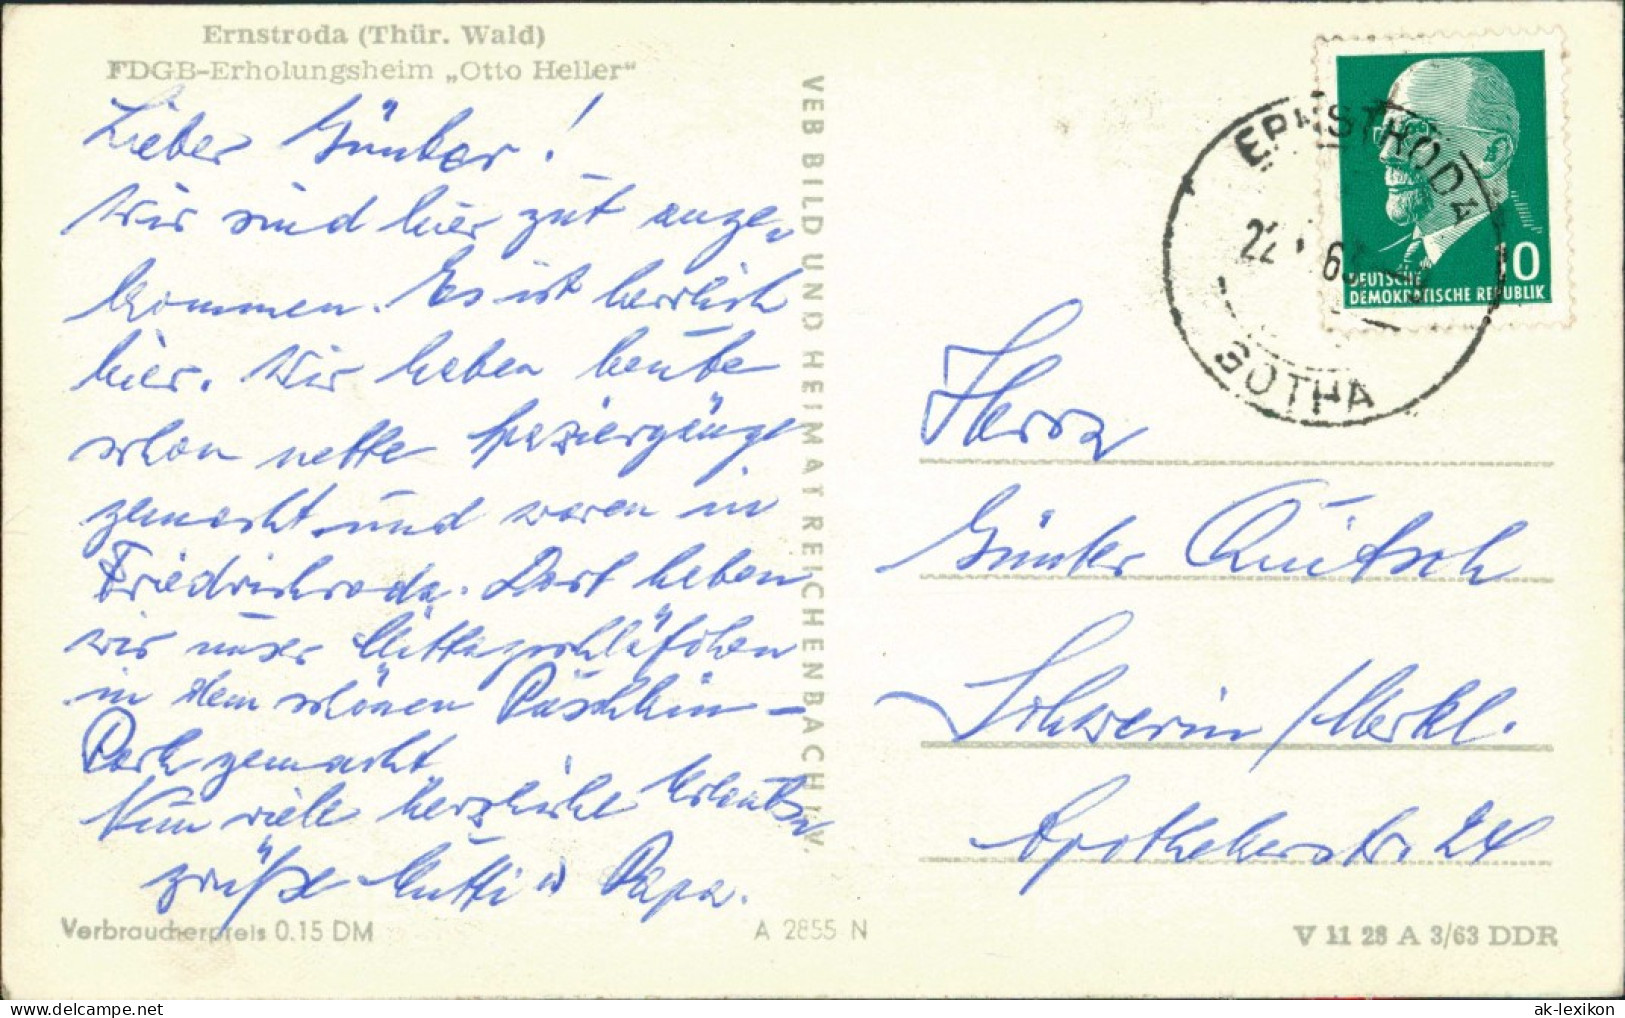 Ernstroda (Thür. Wald)
FDGB-Erholungsheim „Otto Heller“
Lieber Günter!
Wir sind hier gut ange-
kommen. Es ist herrlich
hier. Wir haben heute
schon nette Spaziergänge
gemacht und waren in
Friedrichroda. Dort haben
wir unser Mittagsschläfchen
in dem schönen Puschkin-
Park gemacht.
Nun viele herzliche Urlaubs-
grüße Mutti u Papa.
Verbraucherpreis 0.15 DM
A 2855 N
VEB BILD UND HEIMAT REICHENBACH I. V.
ERNSTRODA
22 63
GOTHA
10
DEUTSCHE
DEMOKRATISCHE REPUBLIK
Herrn
Günter Quitsch
Schwerin / Meckl.
Apothekerstr. 24
V 11 28 A 3/63 DDR
ak-lexikon